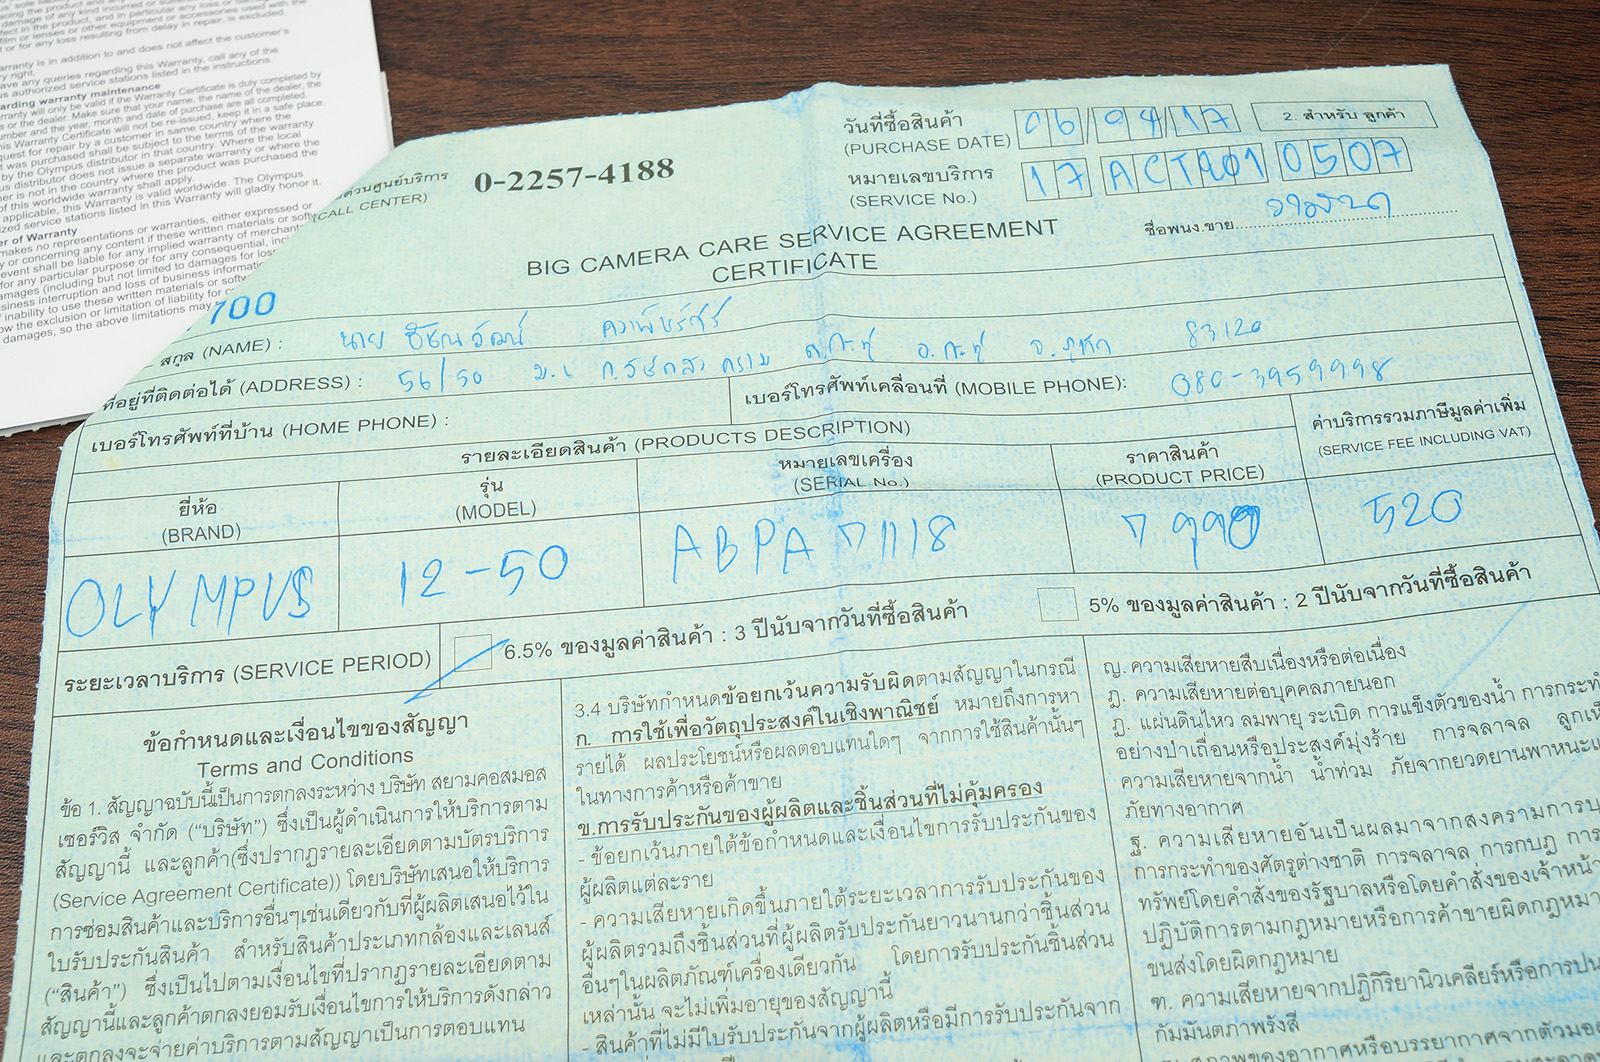 damage of any kind incurred or suff
fect in the product, and in particular any loss or dama
film or lenses or other equipment or accessories used with the
t or for any loss resulting from delay in repair, is excluded.
arranty is in addition to and does not affect the customer's
ry right.
ave any queries regarding this Warranty, call any of the
us authorized service stations listed in the instructions.
arding warranty maintenance
rranty will only be valid if the Warranty Certificate is duly completed by
s or the dealer. Make sure that your name, the name of the dealer, the
umber and the year, month and date of purchase are all completed.
his Warranty Certificate will not be re-issued, keep it in a safe place.
quest for repair by a customer in same country where the
was purchased shall be subject to the terms of the warranty
by the Olympus distributor in that country. Where the local
us distributor does not issue a separate warranty or where the
er is not in the country where the product was purchased the
of this worldwide warranty shall apply.
applicable, this Warranty is valid worldwide. The Olympus
zed service stations listed in this Warranty will gladly honor it.
er of Warranty
makes no representations or warranties, either expressed or
y or concerning any content if these written materials or soft
event shall be liable for any implied warranty of merchant
for any particular purpose or for any consequential, inc
amages (including but not limited to damages for los
siness interruption and loss of business informatio
inability to use these written materials or softw
ow the exclusion or limitation of liability for c
damages, so the above limitations may
วันที่ซื้อสินค้า
(PURCHASE DATE) 06/04/17
2. สำหรับ ลูกค้า
ด่วนศูนย์บริการ
(CALL CENTER)
0-2257-4188
หมายเลขบริการ
(SERVICE No.) 17 ACTA01 0507
ชื่อพนง.ขาย
BIG CAMERA CARE SERVICE AGREEMENT
CERTIFICATE
700
สกุล (NAME) : นาย
ที่อยู่ที่ติดต่อได้ (ADDRESS) : 56/50 ต.กะทู้ อ.กะทู้ จ.ภูเก็ต 83120
เบอร์โทรศัพท์ที่บ้าน (HOME PHONE) :
เบอร์โทรศัพท์เคลื่อนที่ (MOBILE PHONE): 080-3959998
รายละเอียดสินค้า (PRODUCTS DESCRIPTION)
ค่าบริการรวมภาษีมูลค่าเพิ่ม
(SERVICE FEE INCLUDING VAT)
ยี่ห้อ
(BRAND)
รุ่น
(MODEL)
หมายเลขเครื่อง
(SERIAL No.)
ราคาสินค้า
(PRODUCT PRICE)
OLYMPUS 12-50 ABPA71118 7990 520
ระยะเวลาบริการ (SERVICE PERIOD)
6.5% ของมูลค่าสินค้า : 3 ปีนับจากวันที่ซื้อสินค้า
5% ของมูลค่าสินค้า : 2 ปีนับจากวันที่ซื้อสินค้า
ข้อกำหนดและเงื่อนไขของสัญญา
Terms and Conditions
ข้อ 1. สัญญาฉบับนี้เป็นการตกลงระหว่าง บริษัท สยามคอสมอส
เซอร์วิส จำกัด ("บริษัท") ซึ่งเป็นผู้ดำเนินการให้บริการตาม
สัญญานี้ และลูกค้า(ซึ่งปรากฏรายละเอียดตามบัตรบริการ
(Service Agreement Certificate)) โดยบริษัทเสนอให้บริการ
การซ่อมสินค้าและบริการอื่นๆเช่นเดียวกับที่ผู้ผลิตเสนอไว้ใน
ใบรับประกันสินค้า สำหรับสินค้าประเภทกล้องและเลนส์
("สินค้า") ซึ่งเป็นไปตามเงื่อนไขที่ปรากฏรายละเอียดตาม
สัญญานี้และลูกค้าตกลงยอมรับเงื่อนไขการให้บริการดังกล่าว
และตกลงจะจ่ายค่าบริการตามสัญญาเป็นการตอบแทน
3.4 บริษัทกำหนดข้อยกเว้นความรับผิดตามสัญญาในกรณี
ก. การใช้เพื่อวัตถุประสงค์ในเชิงพาณิชย์ หมายถึงการหา
รายได้ ผลประโยชน์หรือผลตอบแทนใดๆ จากการใช้สินค้านั้นๆ
ในทางการค้าหรือค้าขาย
ข.การรับประกันของผู้ผลิตและชิ้นส่วนที่ไม่คุ้มครอง
- ข้อยกเว้นภายใต้ข้อกำหนดและเงื่อนไขการรับประกันของ
ผู้ผลิตแต่ละราย
- ความเสียหายเกิดขึ้นภายใต้ระยะเวลาการรับประกันของ
ผู้ผลิตรวมถึงชิ้นส่วนที่ผู้ผลิตรับประกันยาวนานกว่าชิ้นส่วน
อื่นๆในผลิตภัณฑ์เครื่องเดียวกัน โดยการรับประกันชิ้นส่วน
เหล่านั้น จะไม่เพิ่มอายุของสัญญานี้
- สินค้าที่ไม่มีใบรับประกันจากผู้ผลิตหรือมีการรับประกันจาก
ญ. ความเสียหายสืบเนื่องหรือต่อเนื่อง
ฎ. ความเสียหายต่อบุคคลภายนอก
ฏ. แผ่นดินไหว ลมพายุ ระเบิด การแข็งตัวของน้ำ การกระทำ
อย่างป่าเถื่อนหรือประสงค์มุ่งร้าย การจลาจล ลูกเห็
ความเสียหายจากน้ำ น้ำท่วม ภัยจากยวดยานพาหนะแ
ภัยทางอากาศ
ฐ. ความเสียหายอันเป็นผลมาจากสงครามการบ
การกระทำของศัตรูต่างชาติ การจลาจล การกบฏ การ
ทรัพย์โดยคำสั่งของรัฐบาลหรือโดยคำสั่งของเจ้าหน้า
ปฏิบัติการตามกฎหมายหรือการค้าขายผิดกฎหมา
ขนส่งโดยผิดกฎหมาย
ฑ. ความเสียหายจากปฏิกิริยานิวเคลียร์หรือการปน
กัมมันตภาพรังสี
สภาพของอากาศหรือบรรยากาศจากตัวมอ